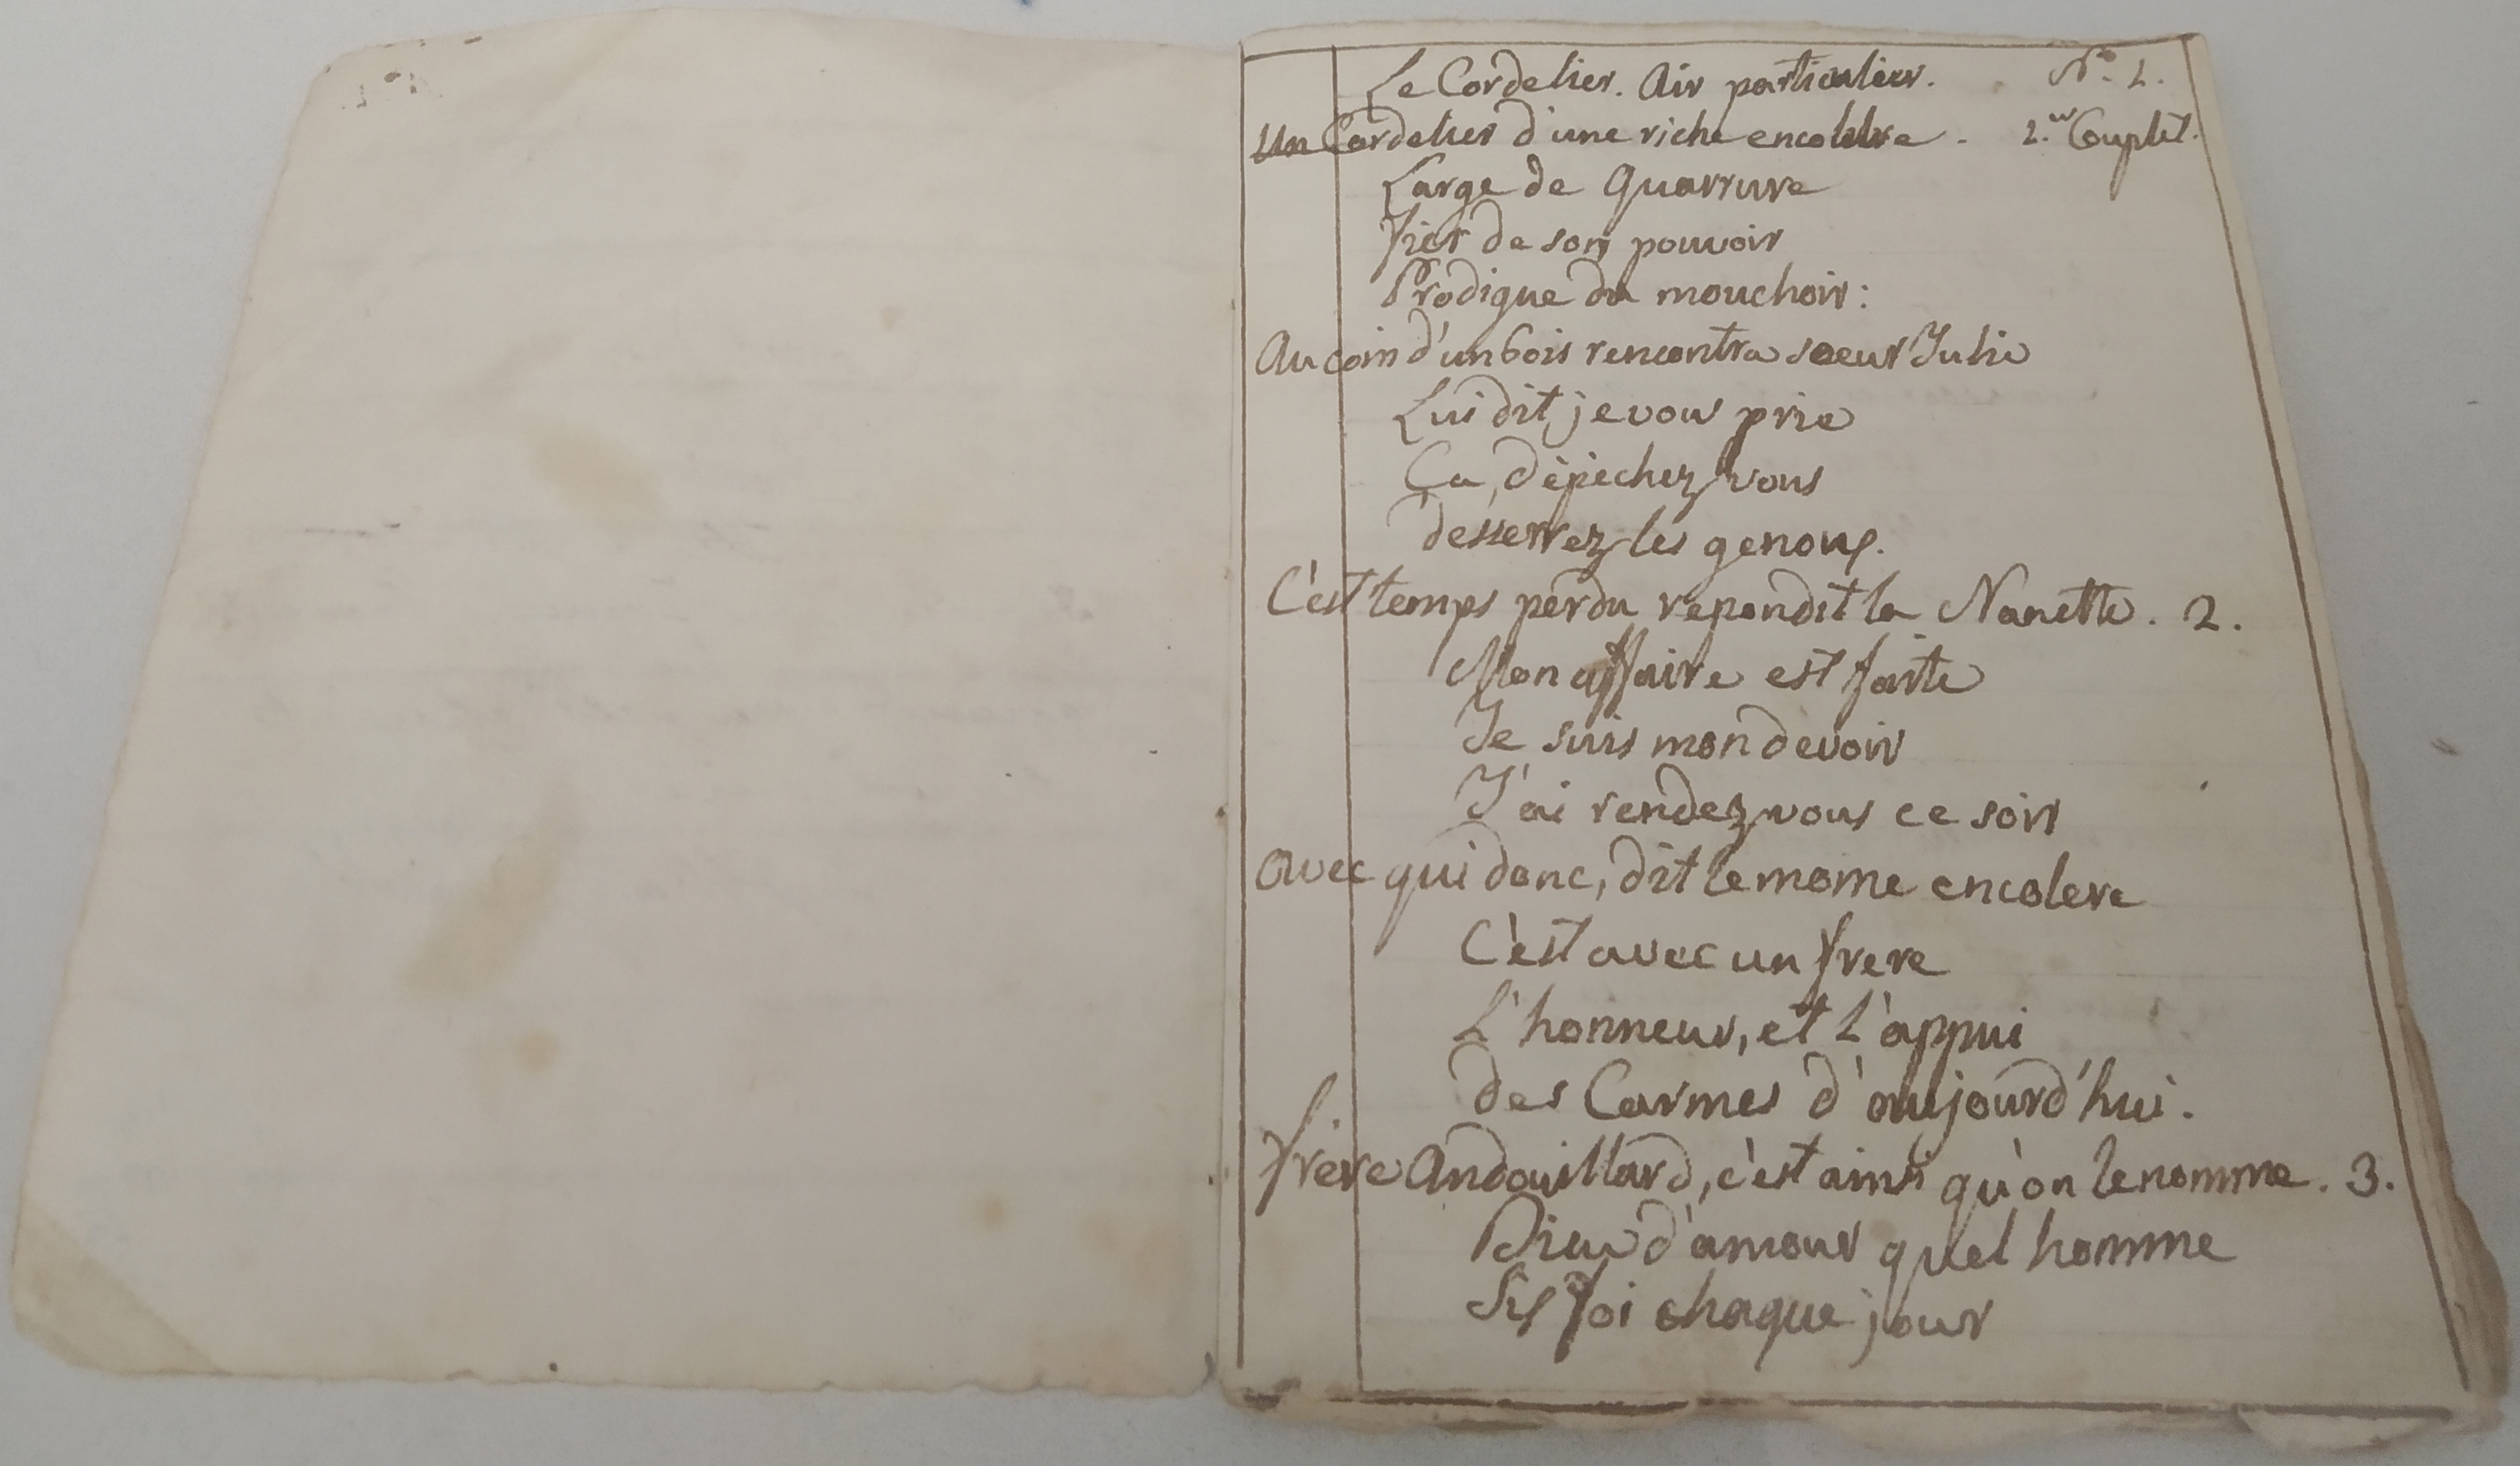 Le Cordelier. Air particulier. N.o 1.
Un Cordelier d'une riche encolure. 1.er Couplet.
Large de Quarrure
Fier de son pouvoir
Prodigue du mouchoir:
Au coin d'un bois rencontra soeur Julie
Lui dit, je vous prie
Ca, dépechez vous
desserrez les genoux.
C'est temps perdu repondit la Nanette. 2.
Mon affaire est faite
Je suis mon devoir
J'ai rendez vous ce soir
Avec qui donc, dit le mome en colere
C'est avec un frere
L'honneur, et L'appui
des Carmes d'aujourd'hui.
frere Andouillard, c'est ainsi qu'on le nomme. 3.
Dieu d'amour quel homme
Six foi chaque jour